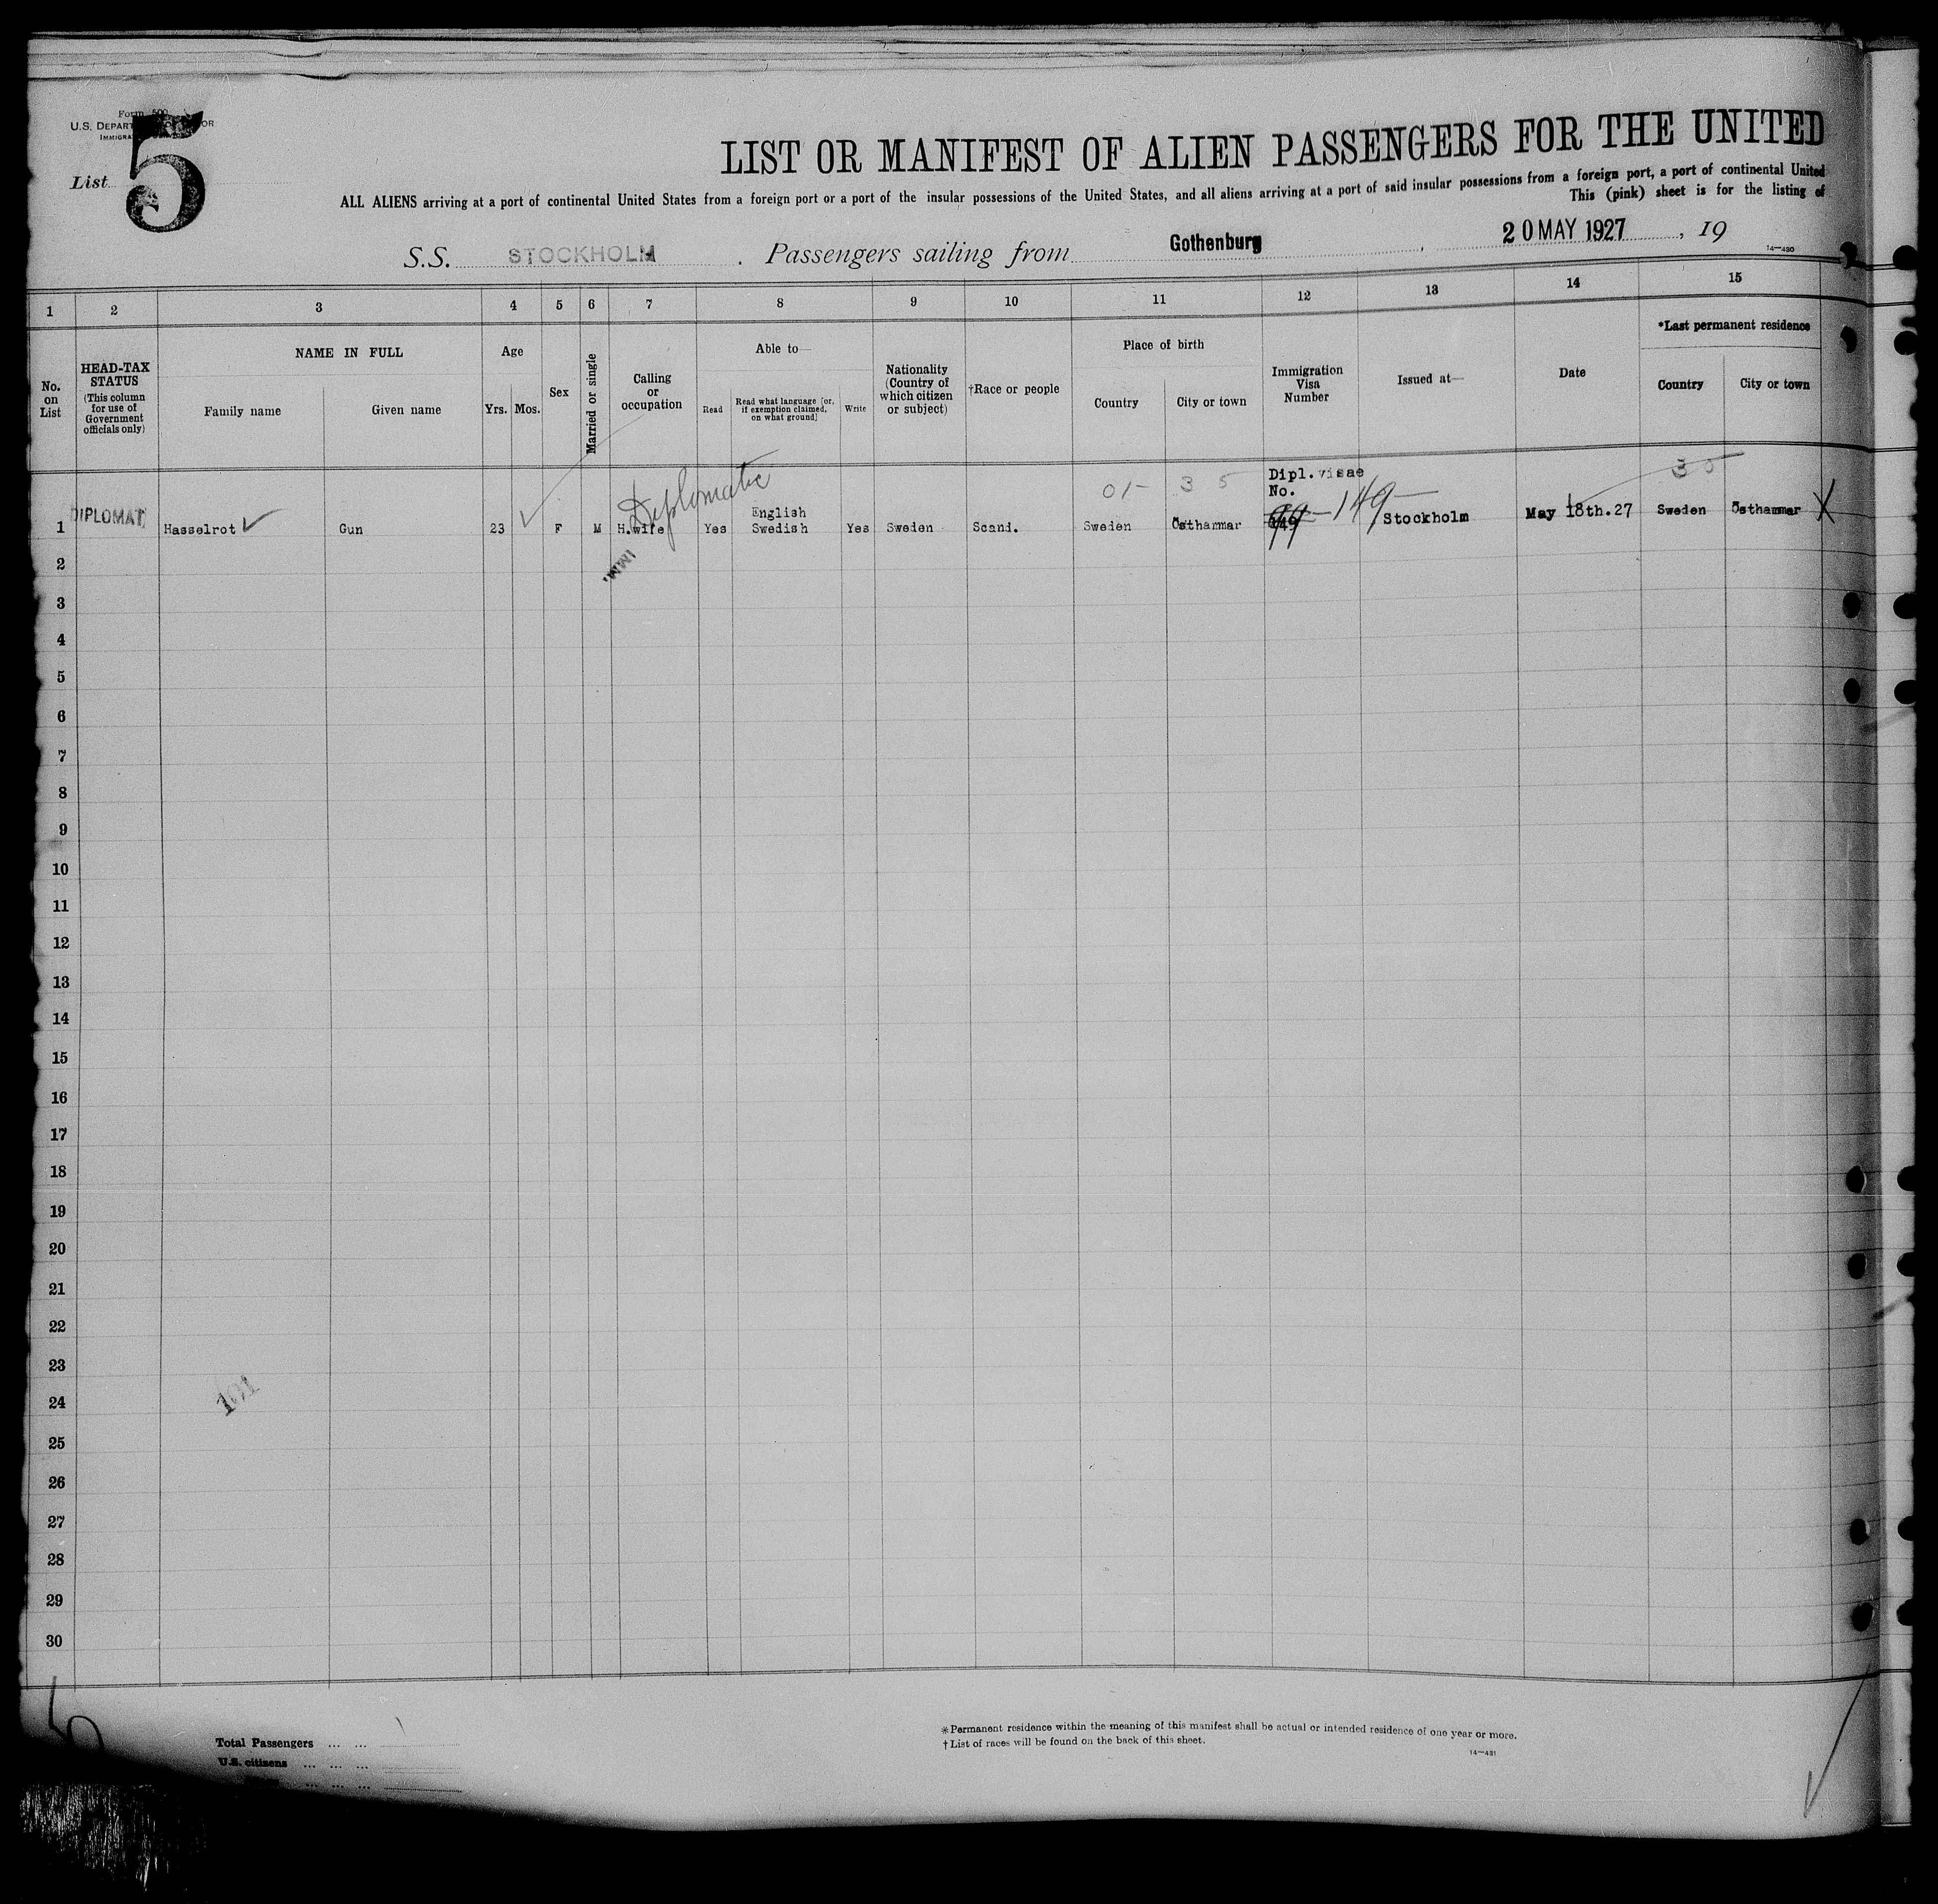 Form 500
U.S. DEPART OR
IMMIGRA
List 5
LIST OR MANIFEST OF ALIEN PASSENGERS FOR THE UNITED
ALL ALIENS arriving at a port of continental United States from a foreign port or a port of the insular possessions of the United States, and all aliens arriving at a port of said insular possessions from a foreign port, a port of continental United
This (pink) sheet is for the listing of
S.S. STOCKHOLM . Passengers sailing from Gothenburg , 20 MAY 1927 , 19
14—430
1 2 3 4 5 6 7 8 9 10 11 12 13 14 15
No. on List
HEAD-TAX STATUS (This column for use of Government officials only)
NAME IN FULL
Family name Given name
Age
Yrs. Mos.
Sex
Married or single
Calling or occupation
Able to—
Read Read what language [or, if exemption claimed, on what ground] Write
Nationality (Country of which citizen or subject)
†Race or people
Place of birth
Country City or town
Immigration Visa Number
Issued at—
Date
*Last permanent residence
Country City or town
Diplomatic 01- 3 5 Dipl. visae No. 35
1 DIPLOMAT Hasselrot Gun 23 F M H.wife Yes English Swedish Yes Sweden Scand. Sweden Östhammar 149 Stockholm May 18th.27 Sweden Östhammar X
IMM.
2
3
4
5
6
7
8
9
10
11
12
13
14
15
16
17
18
19
20
21
22
23
24
101
25
26
27
28
29
30
5
Total Passengers ... ...
U.S. citizens ... ... ...
*Permanent residence within the meaning of this manifest shall be actual or intended residence of one year or more.
†List of races will be found on the back of this sheet.
14—431